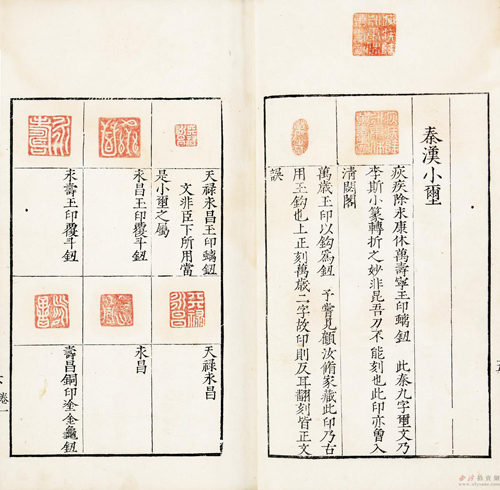 秦漢小璽
疢疾除永康休萬壽寧王印螭鈕　此秦九字璽文乃
李斯小篆轉折之妙非昆吾刀不能刻也此印亦曾入
清閟閣
萬歲王印以鈎爲鈕　予嘗見顧汝脩家藏此印乃古
用玉鈎也上正刻萬歲二字故印則反耳翻刻皆正文
誤
天祿永昌王印螭鈕
文非臣下所用當
是小璽之屬
永昌王印覆斗鈕
永壽王印覆斗鈕
天祿永昌
永昌
壽昌銅印塗金龜鈕
卷一